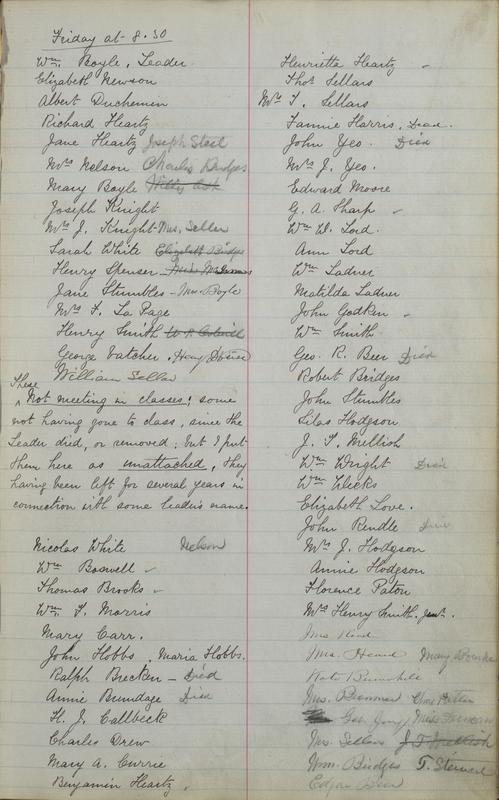 Friday at 8.30
Wm. Boyle, Leader.
Elizabeth Newson
Albert Duchemin
Richard Heartz
Jane Heartz Joseph Steel
Mrs Nelson Charles Bridges
Mary Boyle
Joseph Knight
Mrs J. Knight Mrs. Sellar
Sarah White Elizabeth Bridges
Henry Spenser
Jane Stumbles - Mrs Boyle
Mrs F. La Page
Henry Smith
George Vatcher. Harry
William Sellar
These
Not meeting in classes; some
not having gone to class, since the
Leader died, or removed; but I put
them here as unattached, they
having been left for several years in
connection with some leader's name.
Nicolas White Nelson
Wm Boswell
Thomas Brooks
Wm. T. Morris
Mary Carr.
John Hobbs, Maria Hobbs.
Ralph Brecken - Died
Annie Brundage Died
H. J. Callbeck
Charles Drew
Mary A. Currie
Benjamin Heartz.
Henrietta Heartz
Thos Sellars
Mrs T. Sellars
Fannie Harris, Dead.
John Yeo. Died
Mrs J. Yeo.
Edward Moore
G. A. Sharp
Wm W. Lord.
Ann Lord
Wm Ladner
Matilda Ladner
John Godkin
Wm Smith
Geo. R. Beer Died
Robert Bridges
John Stumbles
Silas Hodgson
J. T. Mellish
Wm Wright Died
Wm Weeks
Elizabeth Love.
John Rendle Died
Mrs J. Hodgson
Annie Hodgson
Florence Paton
Mrs Henry Smith. Junr.
Mrs
Mrs. Heard Mary
Kate
Mrs.
Geo.
Mrs. Sellars J T Mellish
Wm. Bridges T. Stewart
Edgar Beer